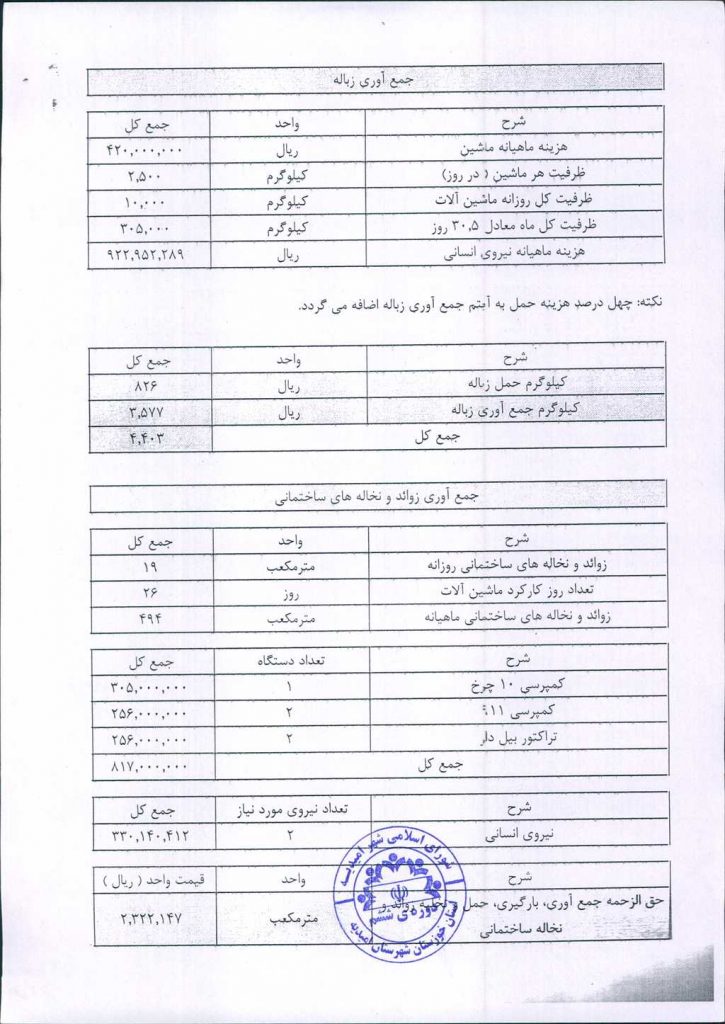 جمع آوری زباله
شرح واحد جمع کل
هزینه ماهیانه ماشین ریال ۴۲۰,۰۰۰,۰۰۰
ظرفیت هر ماشین ( در روز) کیلوگرم ۲,۵۰۰
ظرفیت کل روزانه ماشین آلات کیلوگرم ۱۰,۰۰۰
ظرفیت کل ماه معادل ۳۰,۵ روز کیلوگرم ۳۰۵,۰۰۰
هزینه ماهیانه نیروی انسانی ریال ۹۲۲,۹۵۲,۲۸۹
نکته: چهل درصد هزینه حمل به آیتم جمع آوری زباله اضافه می گردد.
شرح واحد جمع کل
کیلوگرم حمل زباله ریال ۸۲۶
کیلوگرم جمع آوری زباله ریال ۳,۵۷۷
جمع کل ۴,۴۰۳
جمع آوری زوائد و نخاله های ساختمانی
شرح واحد جمع کل
زوائد و نخاله های ساختمانی روزانه مترمکعب ۱۹
تعداد روز کارکرد ماشین آلات روز ۲۶
زوائد و نخاله های ساختمانی ماهیانه مترمکعب ۴۹۴
شرح تعداد دستگاه جمع کل
کمپرسی ۱۰ چرخ ۱ ۳۰۵,۰۰۰,۰۰۰
کمپرسی ۹۱۱ ۲ ۲۵۶,۰۰۰,۰۰۰
تراکتور بیل دار ۲ ۲۵۶,۰۰۰,۰۰۰
جمع کل ۸۱۷,۰۰۰,۰۰۰
شرح تعداد نیروی مورد نیاز جمع کل
نیروی انسانی ۲ ۳۳۰,۱۴۰,۴۱۲
شرح واحد قیمت واحد ( ریال )
حق الزحمه جمع آوری، بارگیری، حمل و تخلیه زوائد و
نخاله ساختمانی مترمکعب ۲,۳۲۲,۱۴۷
شورای اسلامی شهر امیدیه
دوره ی ششم
استان خوزستان شهرستان امیدیه